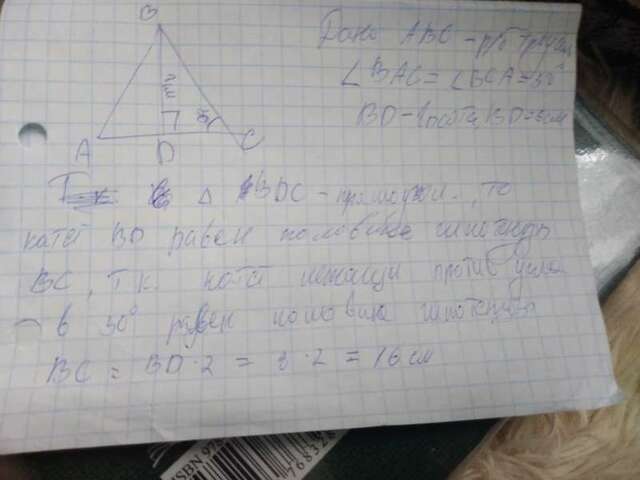 B
Дано ABC - р/б треуг.
∠BAC = ∠BCA = 30°
BD - высота, BD = 8 см
A D C
△ BDC - прямоугол., то
катет BD равен половине гипотенузы
BC, т.к. катет лежащий против угла
в 30° равен половине гипотенузы
BC = BD · 2 = 8 · 2 = 16 см
ISBN 978